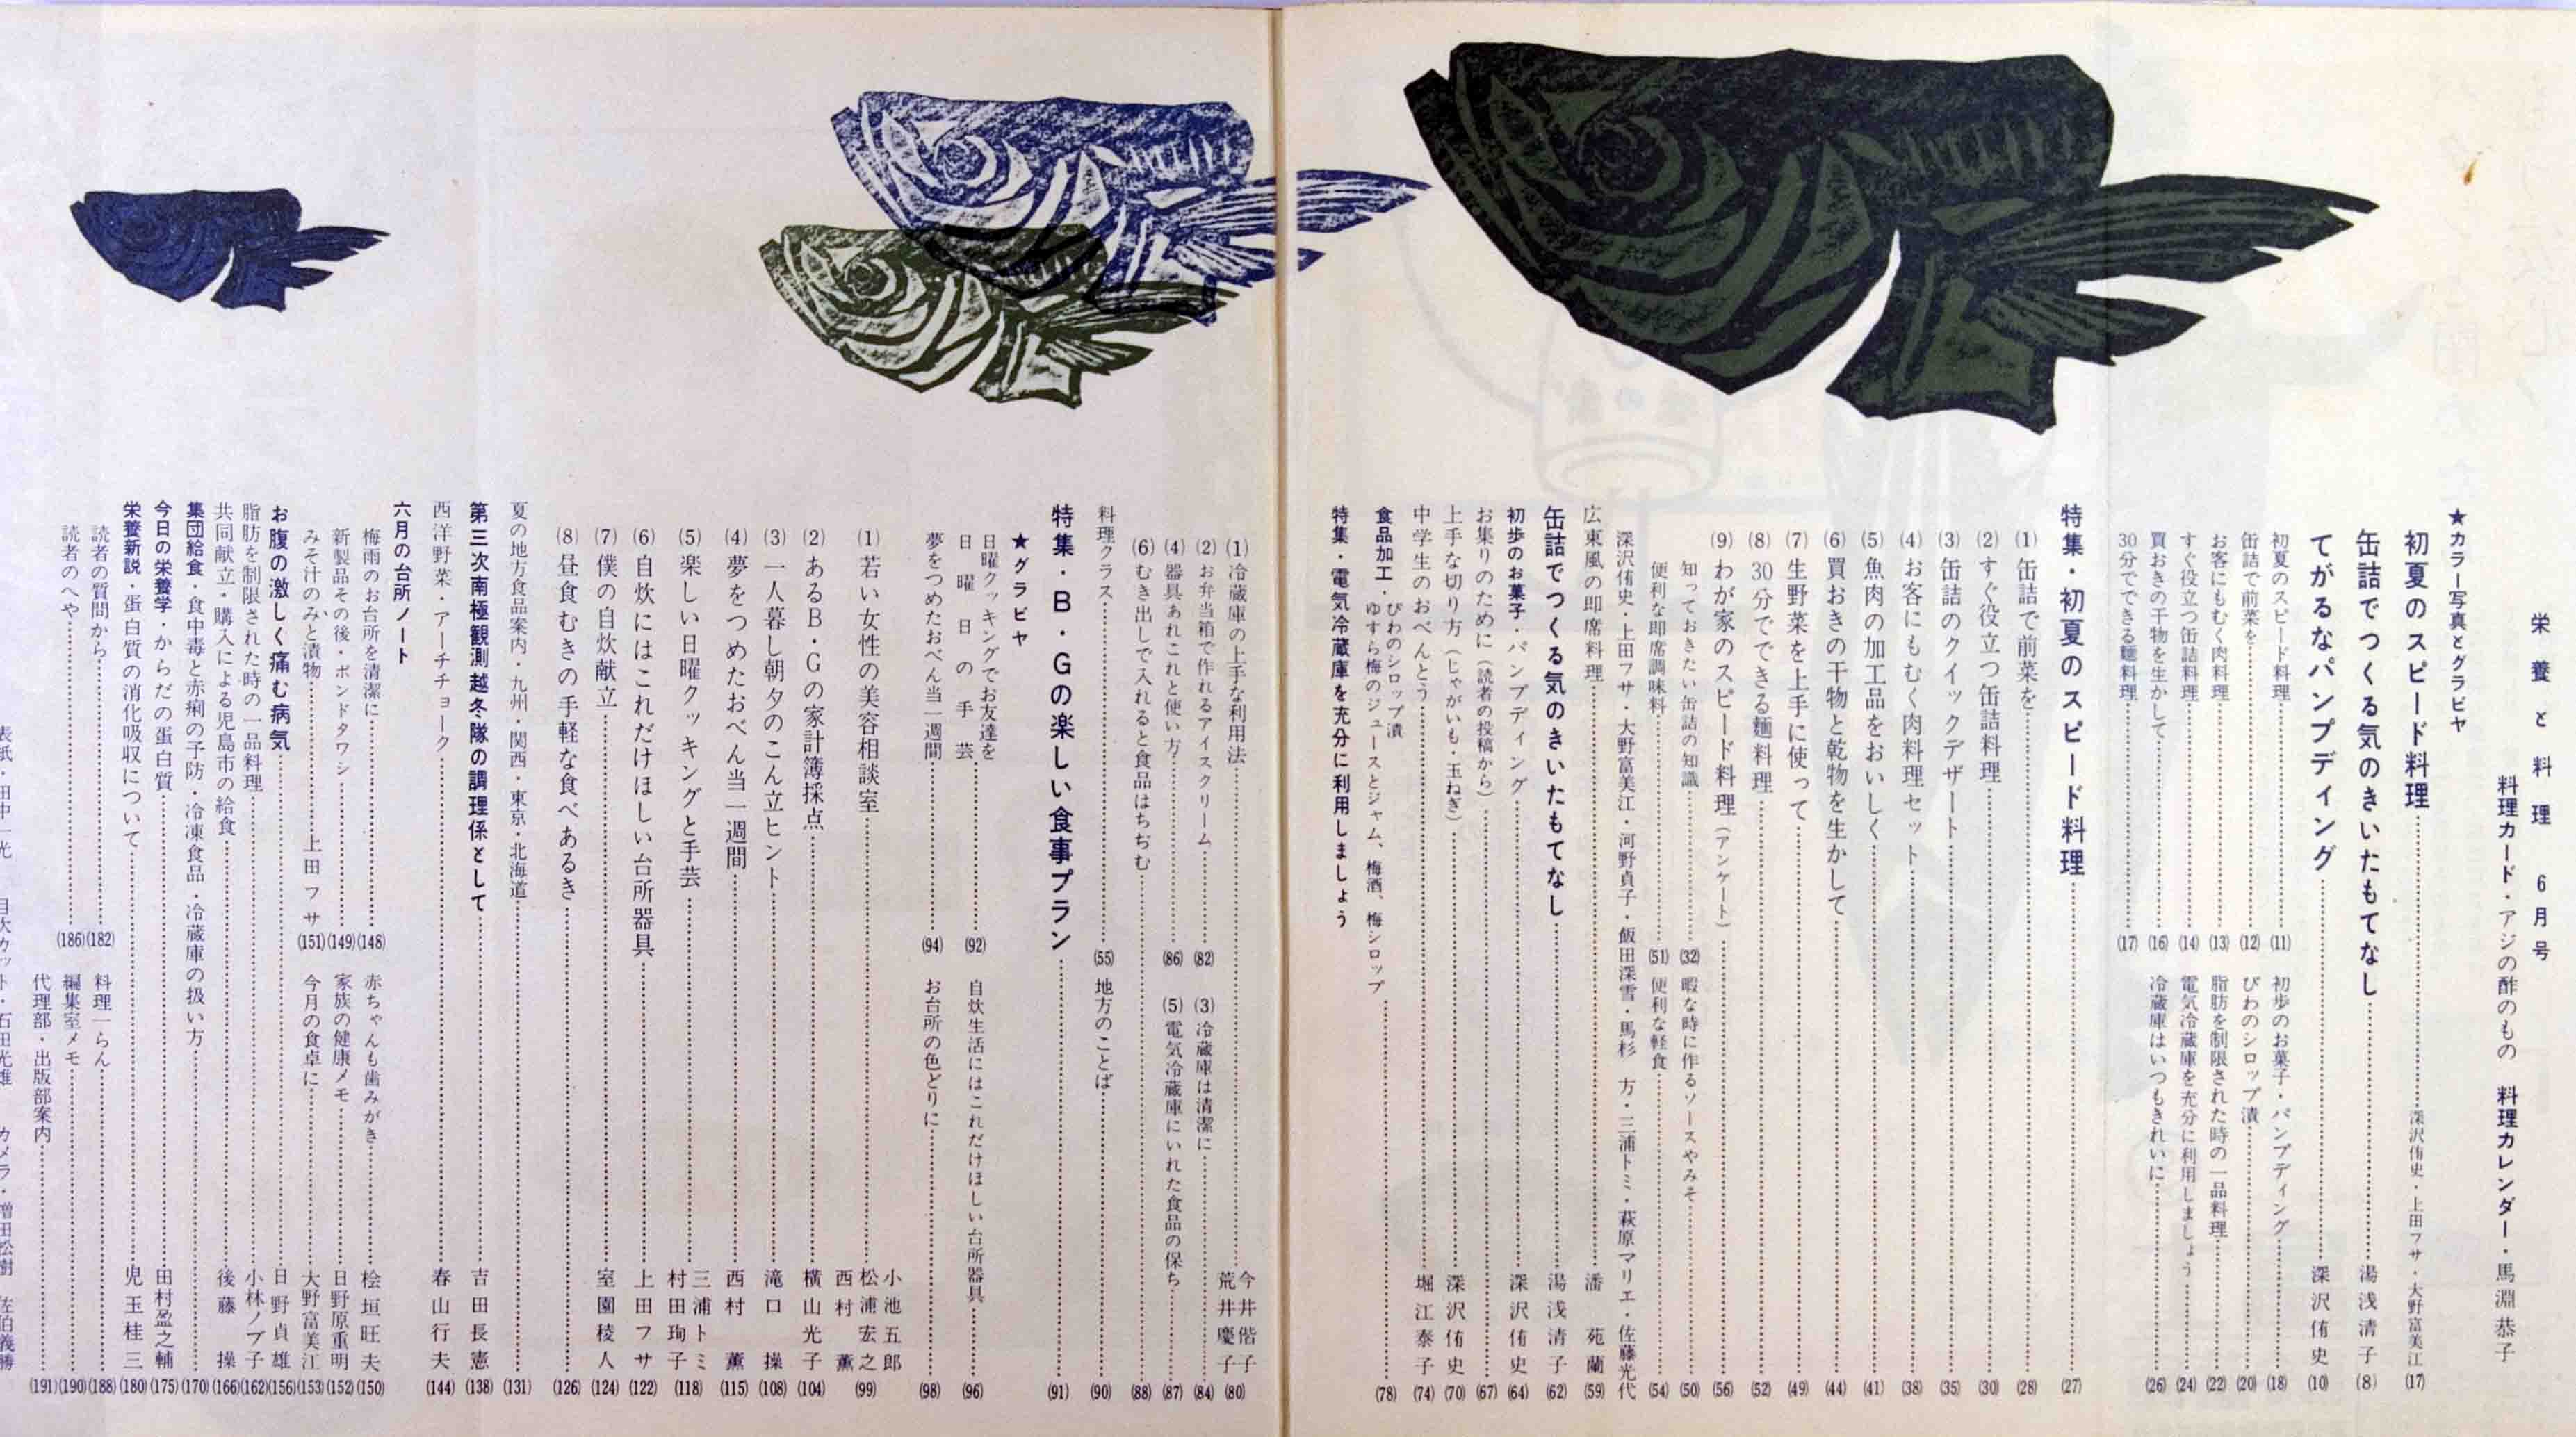 栄養と料理 6月号
料理カード・アジの酢のもの 料理カレンダー・馬淵恭子
★カラー写真とグラビヤ
初夏のスピード料理……深沢侑史・上田フサ・大野富美江(17)
缶詰でつくる気のきいたもてなし……湯浅清子(8)
てがるなパンプディング……深沢侑史(10)
初夏のスピード料理……(11)
缶詰で前菜を……(12)
お客にもむく肉料理……(13)
すぐ役立つ缶詰料理……(14)
買おきの干物を生かして……(16)
30分でできる麺料理……(17)
初歩のお菓子・パンプディング……(18)
びわのシロップ漬……(20)
脂肪を制限された時の一品料理……(22)
電気冷蔵庫を充分に利用しましょう……(24)
冷蔵庫はいつもきれいに……(26)
特集・初夏のスピード料理……(27)
(1)缶詰で前菜を……(28)
(2)すぐ役立つ缶詰料理……(30)
(3)缶詰のクイックデザート……(35)
(4)お客にもむく肉料理セット……(38)
(5)魚肉の加工品をおいしく……(41)
(6)買おきの干物と乾物を生かして……(44)
(7)生野菜を上手に使って……(49)
(8)30分でできる麺料理……(52)
(9)わが家のスピード料理(アンケート)……(56)
知っておきたい缶詰の知識……(32)
暇な時に作るソースやみそ……(50)
便利な即席調味料……(51)
便利な軽食……(54)
深沢侑史・上田フサ・大野富美江・河野貞子・飯田深雪・馬杉 方・三浦トミ・萩原マリエ・佐藤光代
広東風の即席料理……潘 苑蘭(59)
缶詰でつくる気のきいたもてなし……湯浅清子(62)
初歩のお菓子・パンプディング……深沢侑史(64)
お集りのために(読者の投稿から)……(67)
上手な切り方(じゃがいも・玉ねぎ)……深沢侑史(70)
中学生のおべんとう……堀江泰子(74)
食品加工・びわのシロップ漬
ゆすら梅のジュースとジャム、梅酒、梅シロップ……(78)
特集・電気冷蔵庫を充分に利用しましょう
(1)冷蔵庫の上手な利用法……今井偕子
荒井慶子(80)
(2)お弁当箱で作れるアイスクリーム……(82)
(3)冷蔵庫は清潔に……(84)
(4)器具あれこれと使い方……(86)
(5)電気冷蔵庫にいれた食品の保ち……(87)
(6)むき出しで入れると食品はちぢむ……(88)
料理クラス……(55)
地方のことば……(90)
特集・B・Gの楽しい食事プラン……(91)
★グラビヤ
日曜クッキングでお友達を
日曜日の手芸……(92)
夢をつめたおべん当一週間……(94)
自炊生活にはこれだけほしい台所器具……(96)
お台所の色どりに……(98)
(1)若い女性の美容相談室……小池五郎
松浦宏之
西村 薫(99)
(2)あるB・Gの家計簿採点……横山光子(104)
(3)一人暮し朝夕のこん立ヒント……滝口 操(108)
(4)夢をつめたおべん当一週間……西村 薫(115)
(5)楽しい日曜クッキングと手芸……三浦トミ
村田珣子(118)
(6)自炊にはこれだけほしい台所器具……上田フサ(122)
(7)僕の自炊献立……室園稜人(124)
(8)昼食むきの手軽な食べあるき……(126)
夏の地方食品案内・九州・関西・東京・北海道……(131)
第三次南極観測越冬隊の調理係として……吉田長憲(138)
西洋野菜・アーチチョーク……春山行夫(144)
六月の台所ノート
梅雨のお台所を清潔に……(148)
新製品その後・ボンドタワシ……(149)
みそ汁のみと漬物……上田フサ(151)
赤ちゃんも歯みがき……桧垣旺夫(150)
家族の健康メモ……日野原重明(152)
今月の食卓に……大野富美江(153)
お腹の激しく痛む病気……日野貞雄(156)
脂肪を制限された時の一品料理……小林ノブ子(162)
共同献立・購入による児島市の給食……後藤 操(166)
集団給食・食中毒と赤痢の予防・冷凍食品・冷蔵庫の扱い方……(170)
今日の栄養学・からだの蛋白質……田村盈之輔(175)
栄養新説・蛋白質の消化吸収について……児玉桂三(180)
読者の質問から……(182)
読者のへや……(186)
料理一らん……(188)
編集室メモ……(190)
代理部・出版部案内……(191)
表紙・田中一光 目次カット・石田光雄 カメラ・増田松樹 佐伯義勝